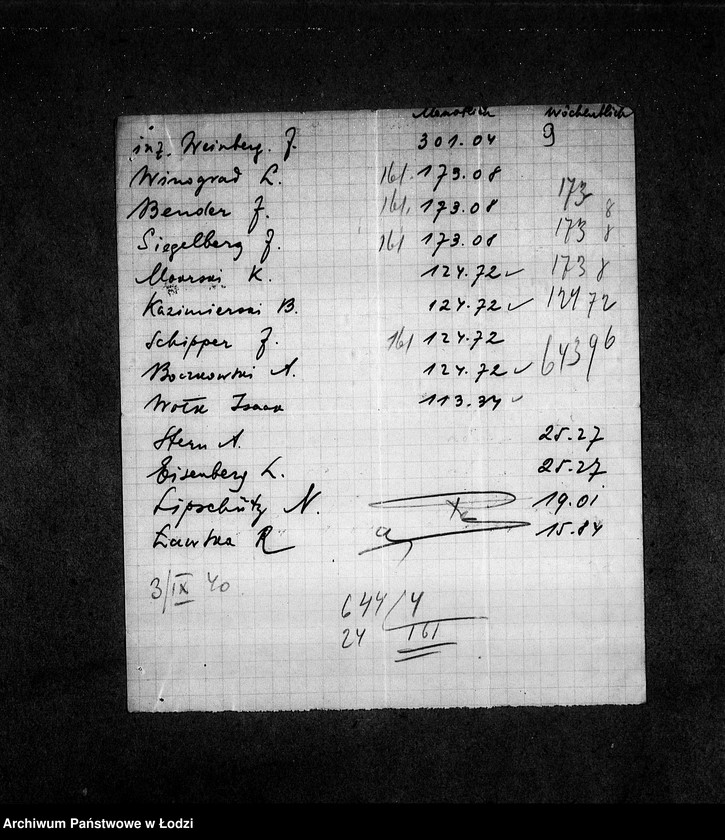 Monatlich Wöchentlich
inż. Weinberg. J. 301.04 9
Winograd L. 161. 173.08
Bender J. 161. 173.08 173 8
Siegelberg J. 161 173.08 173 8
K. 124.72 ✓ 173 8
Kazimierski B. 124.72 ✓ 124 72
Schipper J. 161 124.72 643 96
Boczkowski A. 124.72 ✓
Wołk Izaak 113.34 ✓
Stern A. 25.27
Eisenberg L. 25.27
Lipschütz N. 19.01
R 15.84
3/IX 40
644/4
24 161
Archiwum Państwowe w Łodzi